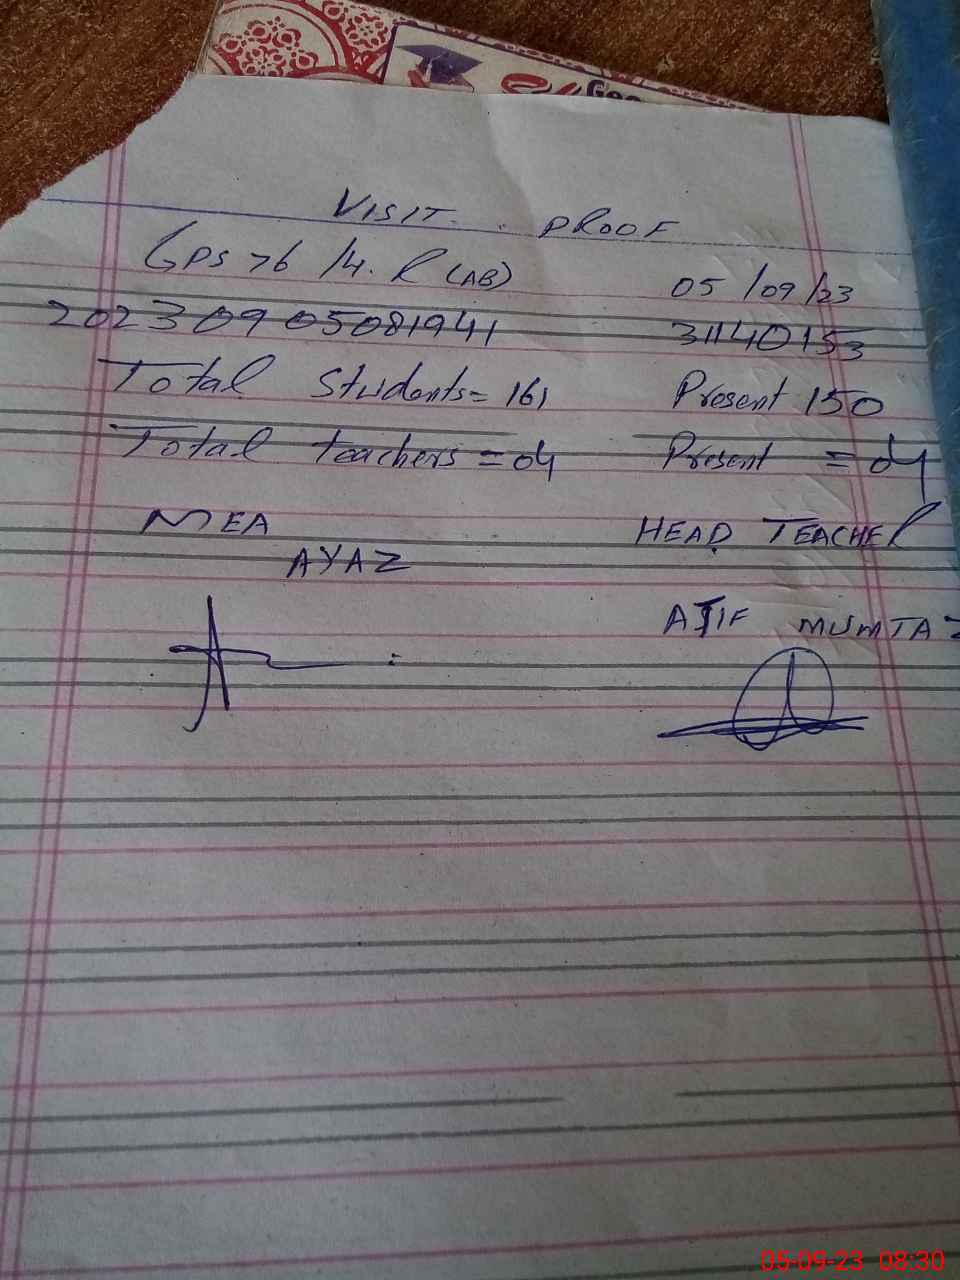 Geo
VISIT PROOF
GPS 76 /4.R (AB) 05/09/23
20230905081941 31140153
Total Students= 161 Present 150
Total teachers = 04 Present = 04
MEA HEAD TEACHER
AYAZ
ATIF MUMTAZ
05-09-23 08:30